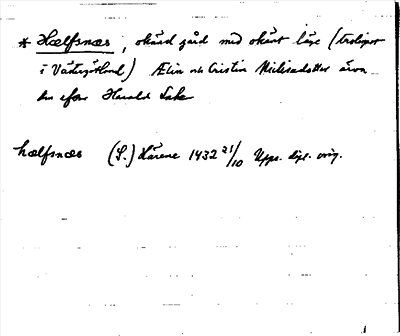 * Hælfsnæs, okänd gård med okänt läge (troligen
i Västergötland) Ælin och Cristin Niclisadotter ärva
den efter Harald Lake
hælfsnæs (S.) Härene 1432 21/10 Upps. dipl. orig.